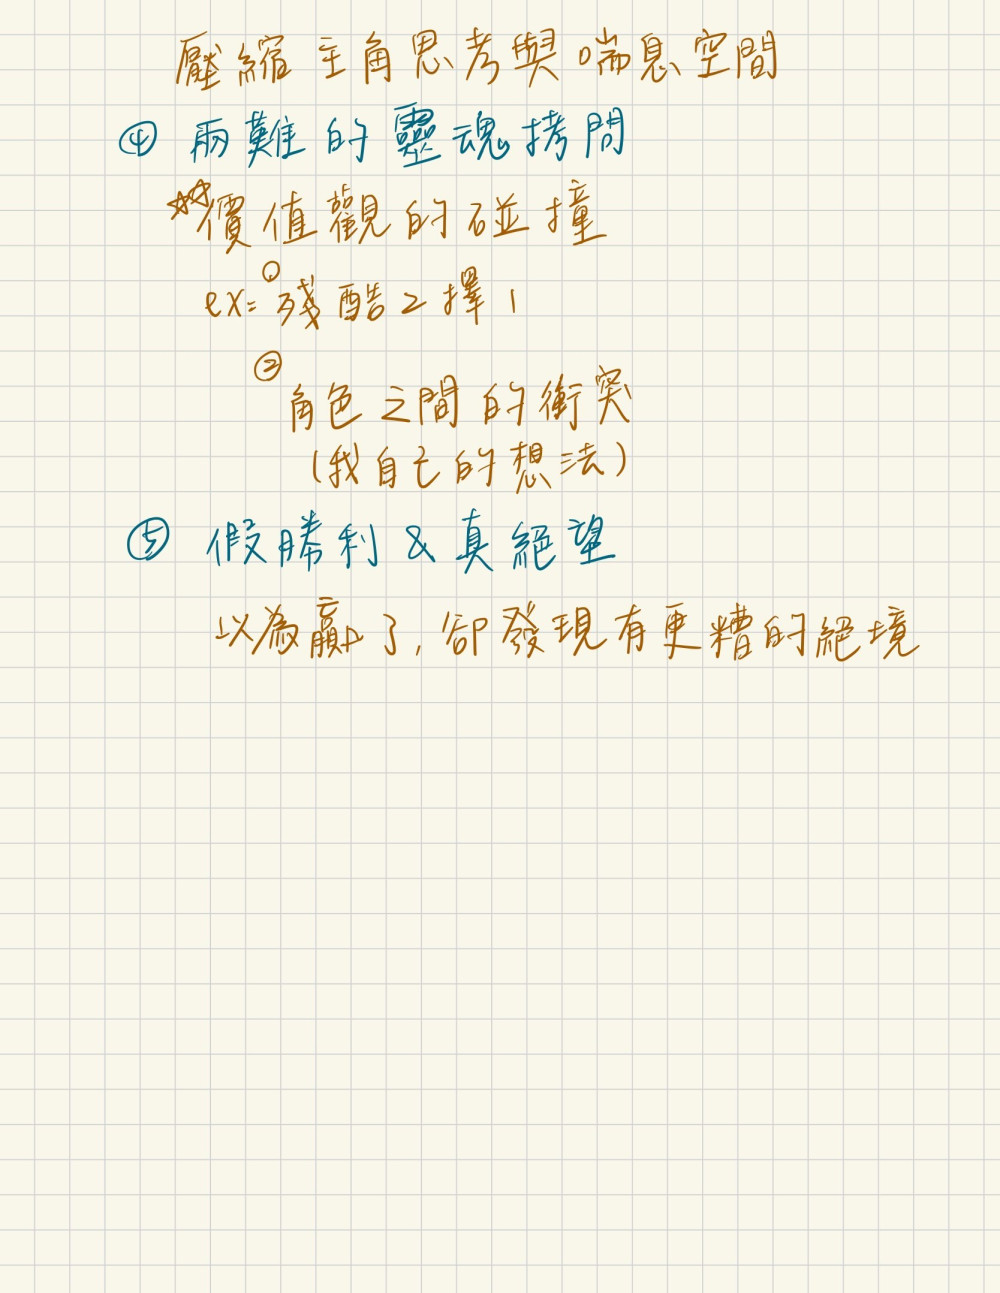 壓縮主角思考與喘息空間
④ 兩難的靈魂拷問
☆☆價值觀的碰撞
ex=①殘酷2擇1
②
角色之間的衝突
(我自己的想法)
⑤ 假勝利 & 真絕望
以為贏了, 卻發現有更糟的絕境